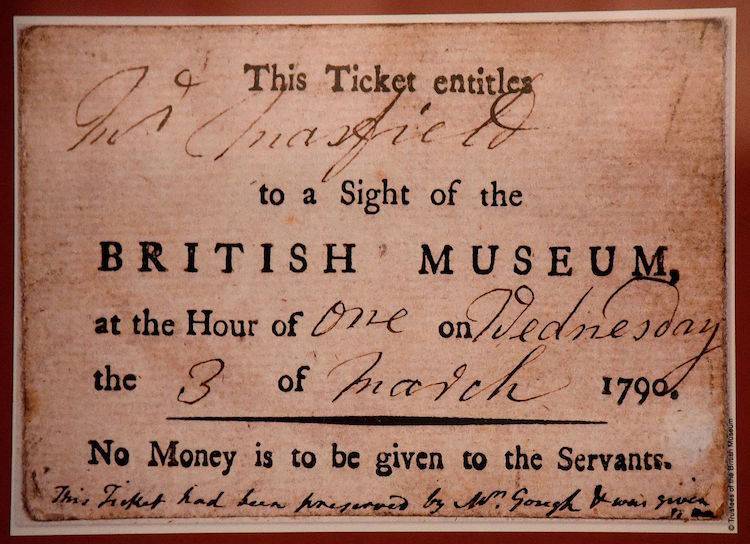 This Ticket entitles
Maxfield
to a Sight of the
BRITISH MUSEUM,
at the Hour of one on Wednesday
the 3 of March 1790.
No Money is to be given to the Servants.
This Ticket had been preserved by Mrs Gough & was given
© Trustees of the British Museum